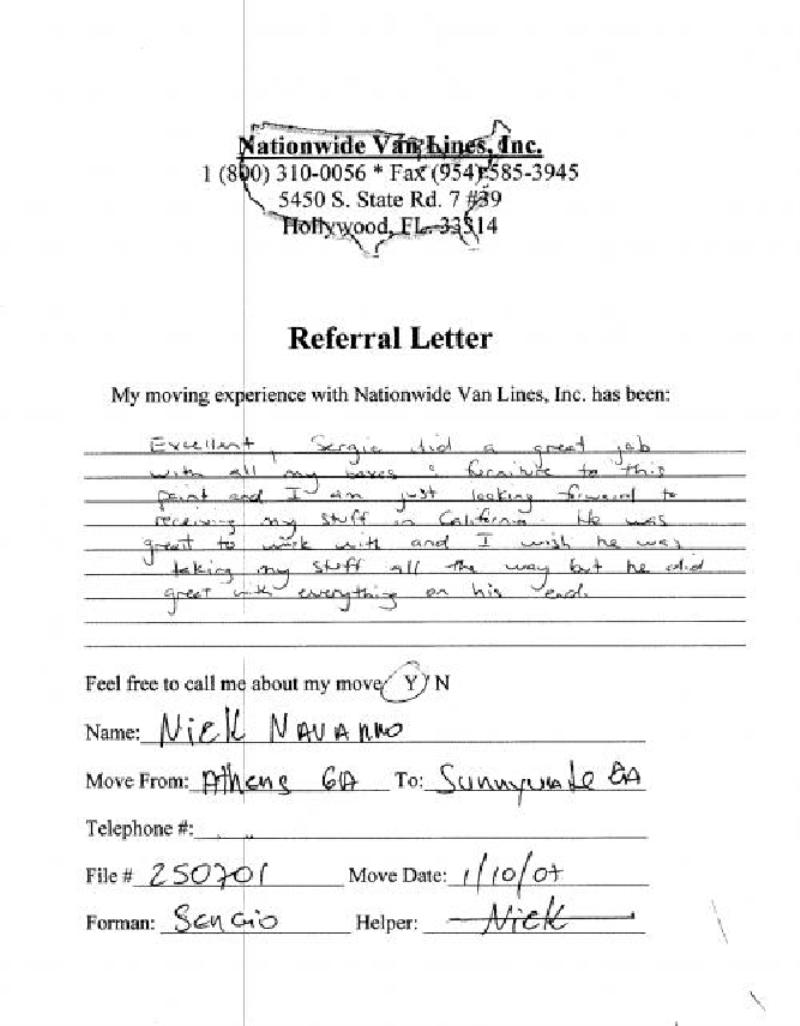 Nationwide Van Lines, Inc.
1 (800) 310-0056 * Fax (954) 585-3945
5450 S. State Rd. 7 #39
Hollywood, FL. 33314
Referral Letter
My moving experience with Nationwide Van Lines, Inc. has been:
Excellent, Sergio did a great job
with all my boxes & furniture to this
point and I am just looking forward to
receiving my stuff in California. He was
great to work with and I wish he was
taking my stuff all the way but he did
great with everything on his end.
Feel free to call me about my move Y / N
Name: Nick Navarro
Move From: Athens GA To: Sunnyvale CA
Telephone #:
File # 250701 Move Date: 1/10/07
Forman: Sergio Helper: Nick